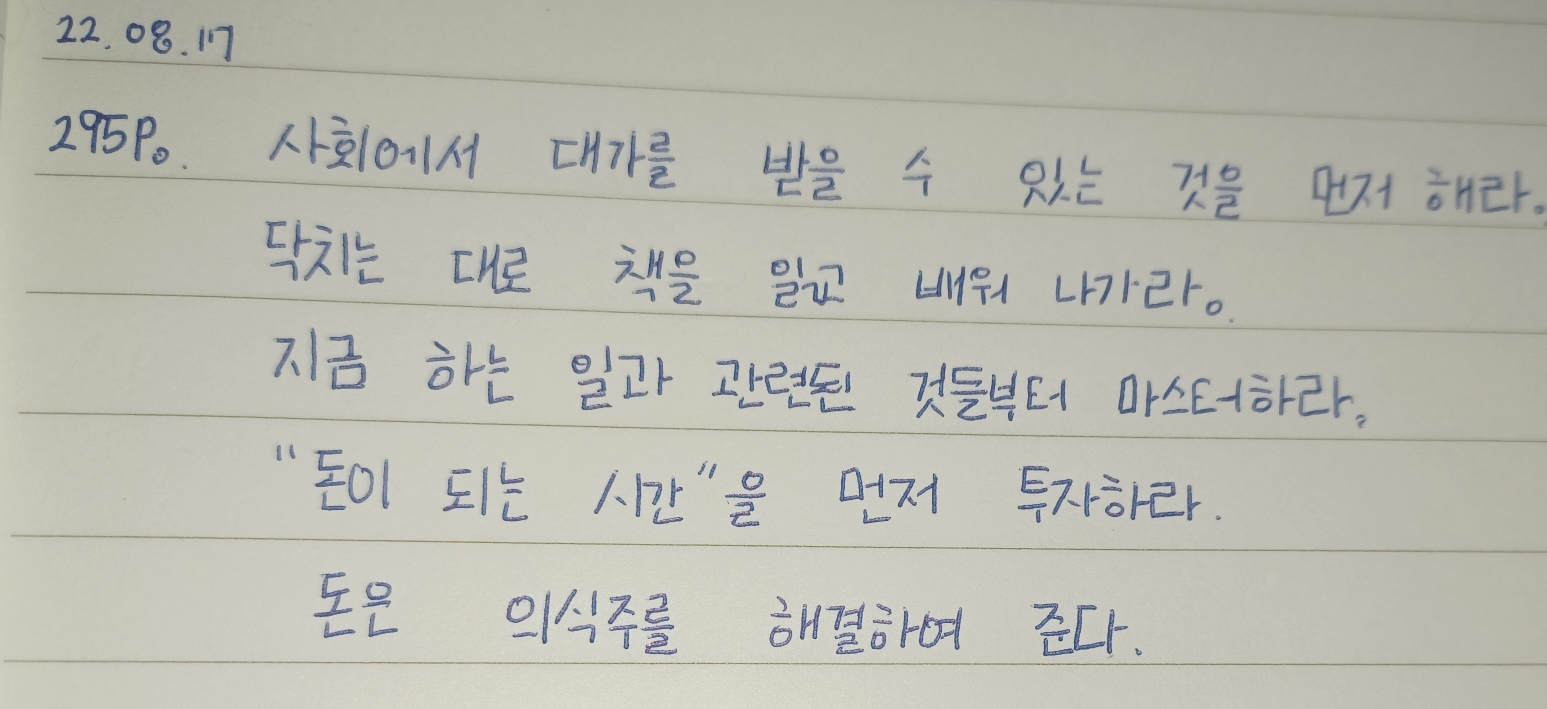 22. 08. 17
295P. 사회에서 대가를 받을 수 있는 것을 먼저 해라.
닥치는 대로 책을 읽고 배워 나가라.
지금 하는 일과 관련된 것들부터 마스터하라.
"돈이 되는 시간"을 먼저 투자하라.
돈은 의식주를 해결하여 준다.